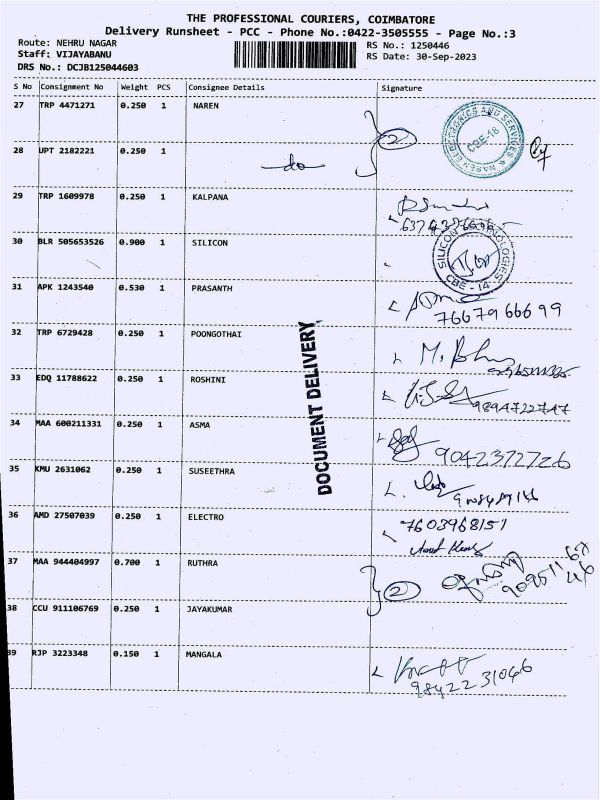 THE PROFESSIONAL COURIERS, COIMBATORE
Delivery Runsheet - PCC - Phone No.:0422-3505555 - Page No.:3
Route: NEHRU NAGAR RS No.: 1250446
Staff: VIJAYABANU RS Date: 30-Sep-2023
DRS No.: DCJB125044603
S No Consignment No Weight PCS Consignee Details Signature
27 TRP 4471271 0.250 1 NAREN
2
NAREN ELECTRONICS AND SERVICES
CBE-18
28 UPT 2182221 0.250 1
do
29 TRP 1609978 0.250 1 KALPANA
30 BLR 505653526 0.900 1 SILICON
SILICON TECHNOLOGIES
CBE - 14
31 APK 1243540 0.530 1 PRASANTH
7667966699
32 TRP 6729428 0.250 1 POONGOTHAI
DOCUMENT DELIVERY
33 EDQ 11788622 0.250 1 ROSHINI
9894722747
34 MAA 600211331 0.250 1 ASMA
9042372726
35 KMU 2631062 0.250 1 SUSEETHRA
36 AMD 27507039 0.250 1 ELECTRO
7603968151
37 MAA 944404997 0.700 1 RUTHRA
2
38 CCU 911106769 0.250 1 JAYAKUMAR
39 RJP 3223348 0.150 1 MANGALA
9842231046